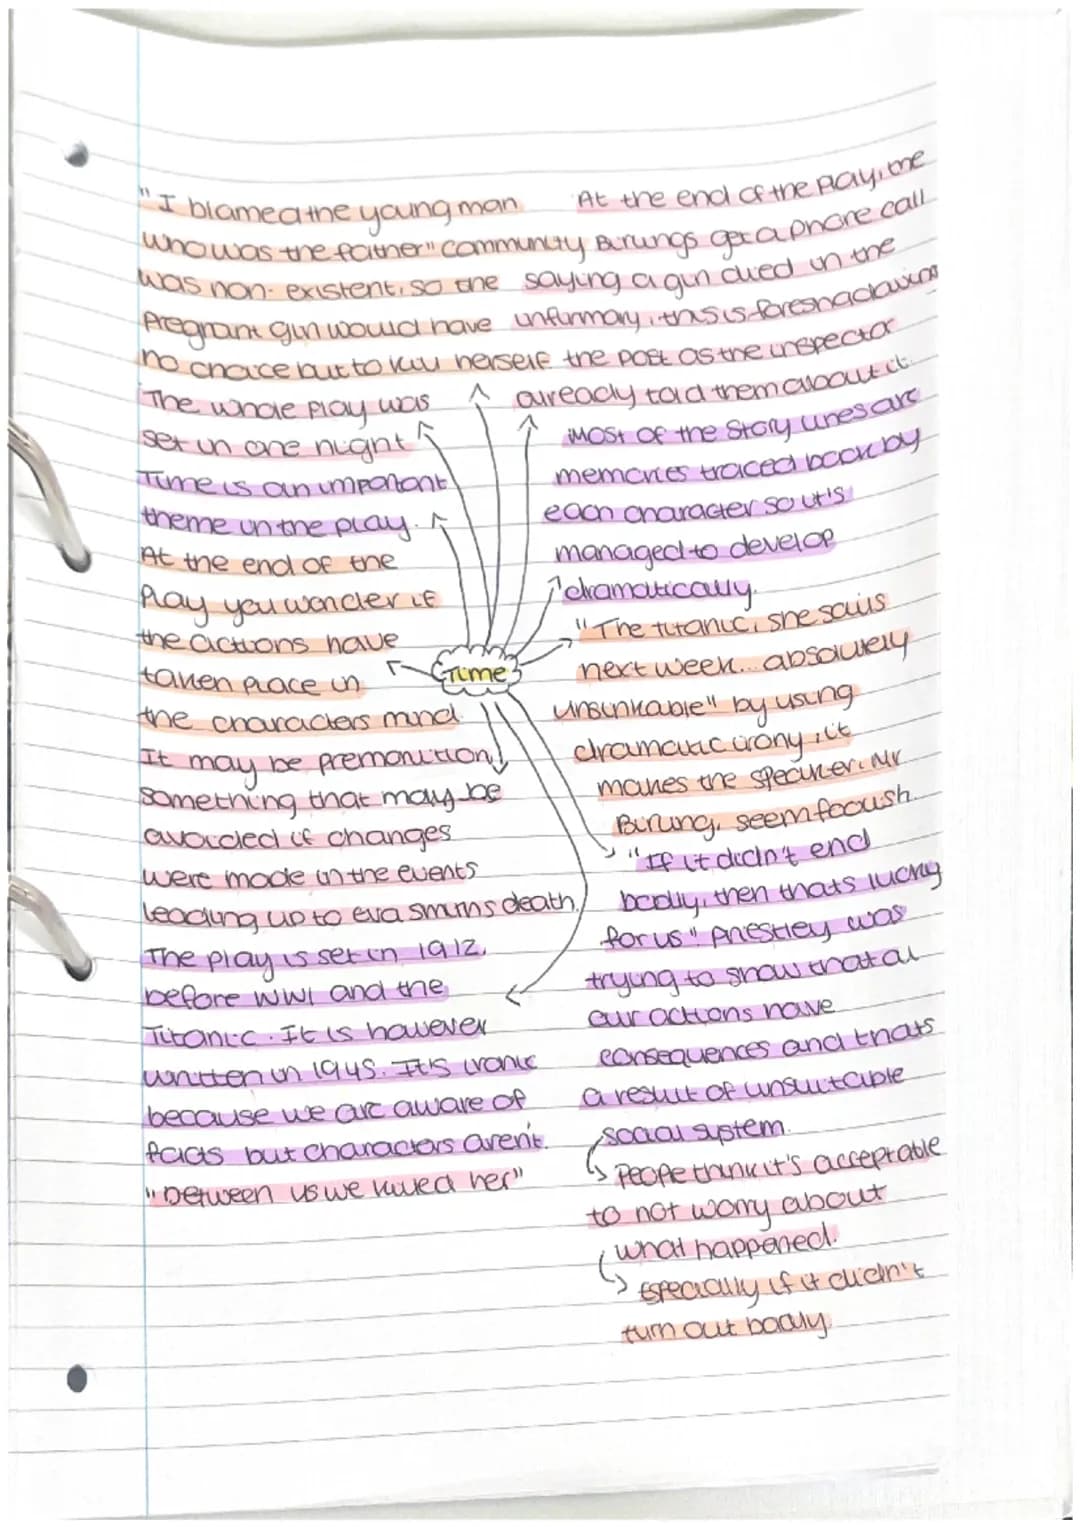 "I blamed the young man
who was the father" community
was non-existent, so the
pregnant girl would have
no choice but to kill herself.
The whole play was
set in one night
Time is an important
theme in the play.
At the end of the
play you wonder if
the actions have
taken place in
the characters mind.
It may be premonition,
something that may be
avoided if changes
were made in the events
leading up to eva smiths death.
The play is set in 1912,
before WW1 and the
Titanic. It is however
written in 1945. It's ironic
because we are aware of
facts but characters aren't.
"between us we killed her"
Time
At the end of the play, the
Birlings get a phone call
saying a girl died in the
infirmary, this is foreshadowing
the past as the inspector
already told them about it.
Most of the story lines are
memories traced back by
each character so it's
managed to develop
dramatically.
"The titanic, she sails
next week... absolutely
unsinkable" by using
dramatic irony, it
makes the speaker, Mr
Birling, seem foolish.
"If it didn't end
badly, then thats lucky
for us" Priestley was
trying to show that al
our actions have
consequences and thats
a result of unsuitable
social system.
People think it's acceptable
to not worry about
what happened.
Especially if it didn't
turn out badly.